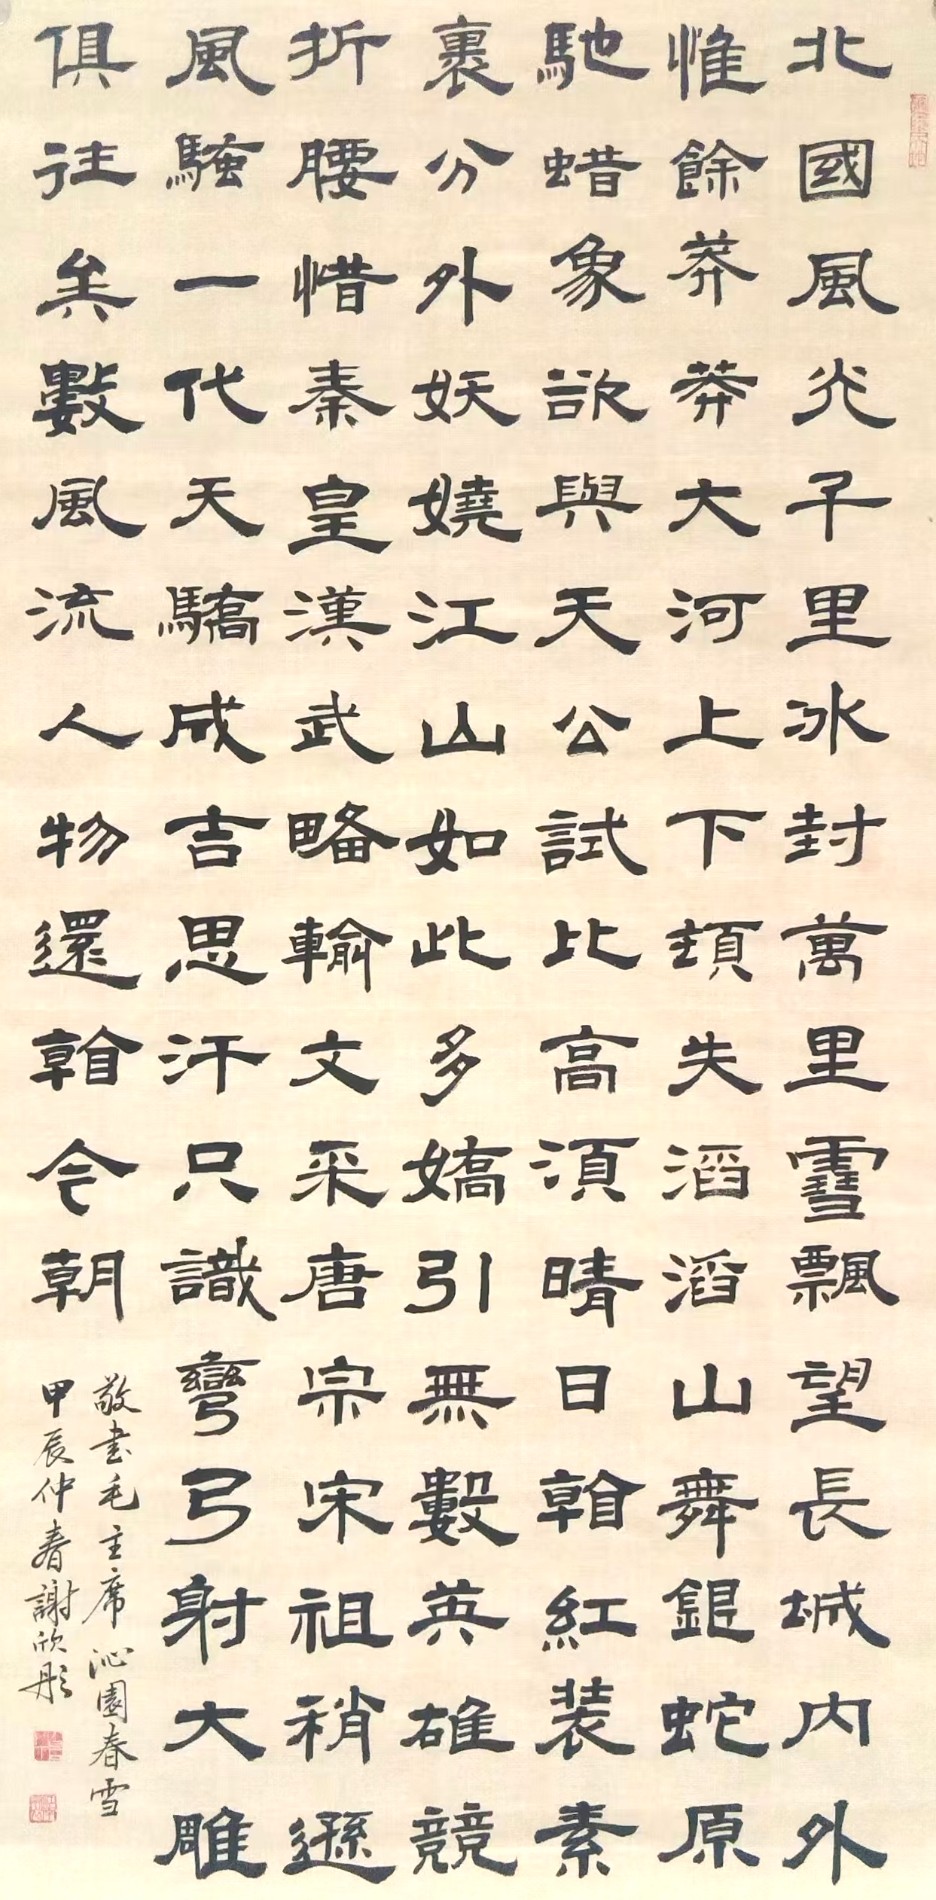 北國風光千里冰封萬里雪飄望長城內外
惟餘莽莽大河上下頓失滔滔山舞銀蛇原
馳蜡象欲與天公試比高須晴日看紅装素
裹分外妖嬈江山如此多嬌引無數英雄競
折腰惜秦皇漢武略輸文采唐宗宋祖稍遜
風騷一代天驕成吉思汗只識彎弓射大雕
俱往矣數風流人物還看今朝
敬書毛主席沁園春雪
甲辰仲春謝欣彤